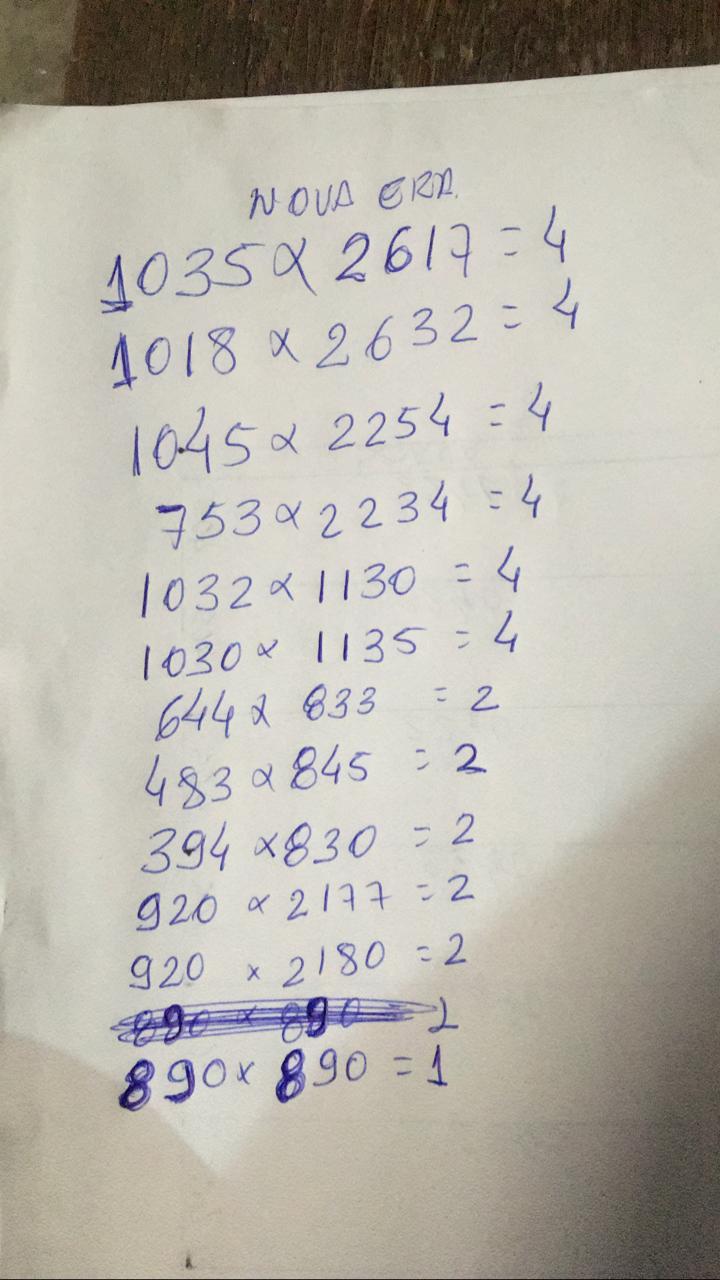 NOVA ERA.
1035 x 2617 = 4
1018 x 2632 = 4
1045 x 2254 = 4
753 x 2234 = 4
1032 x 1130 = 4
1030 x 1135 = 4
644 x 833 = 2
483 x 845 = 2
394 x 830 = 2
920 x 2177 = 2
920 x 2180 = 2
890 x 890 2
890 x 890 = 1